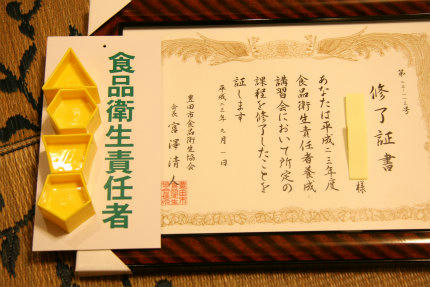 食品衛生責任者
修了証書
様
あなたは平成二三年度
食品衛生責任者養成
講習会において所定の
課程を修了したことを
証します
平成二三年九月一日
豊田市食品衛生協会
会長 富澤清人